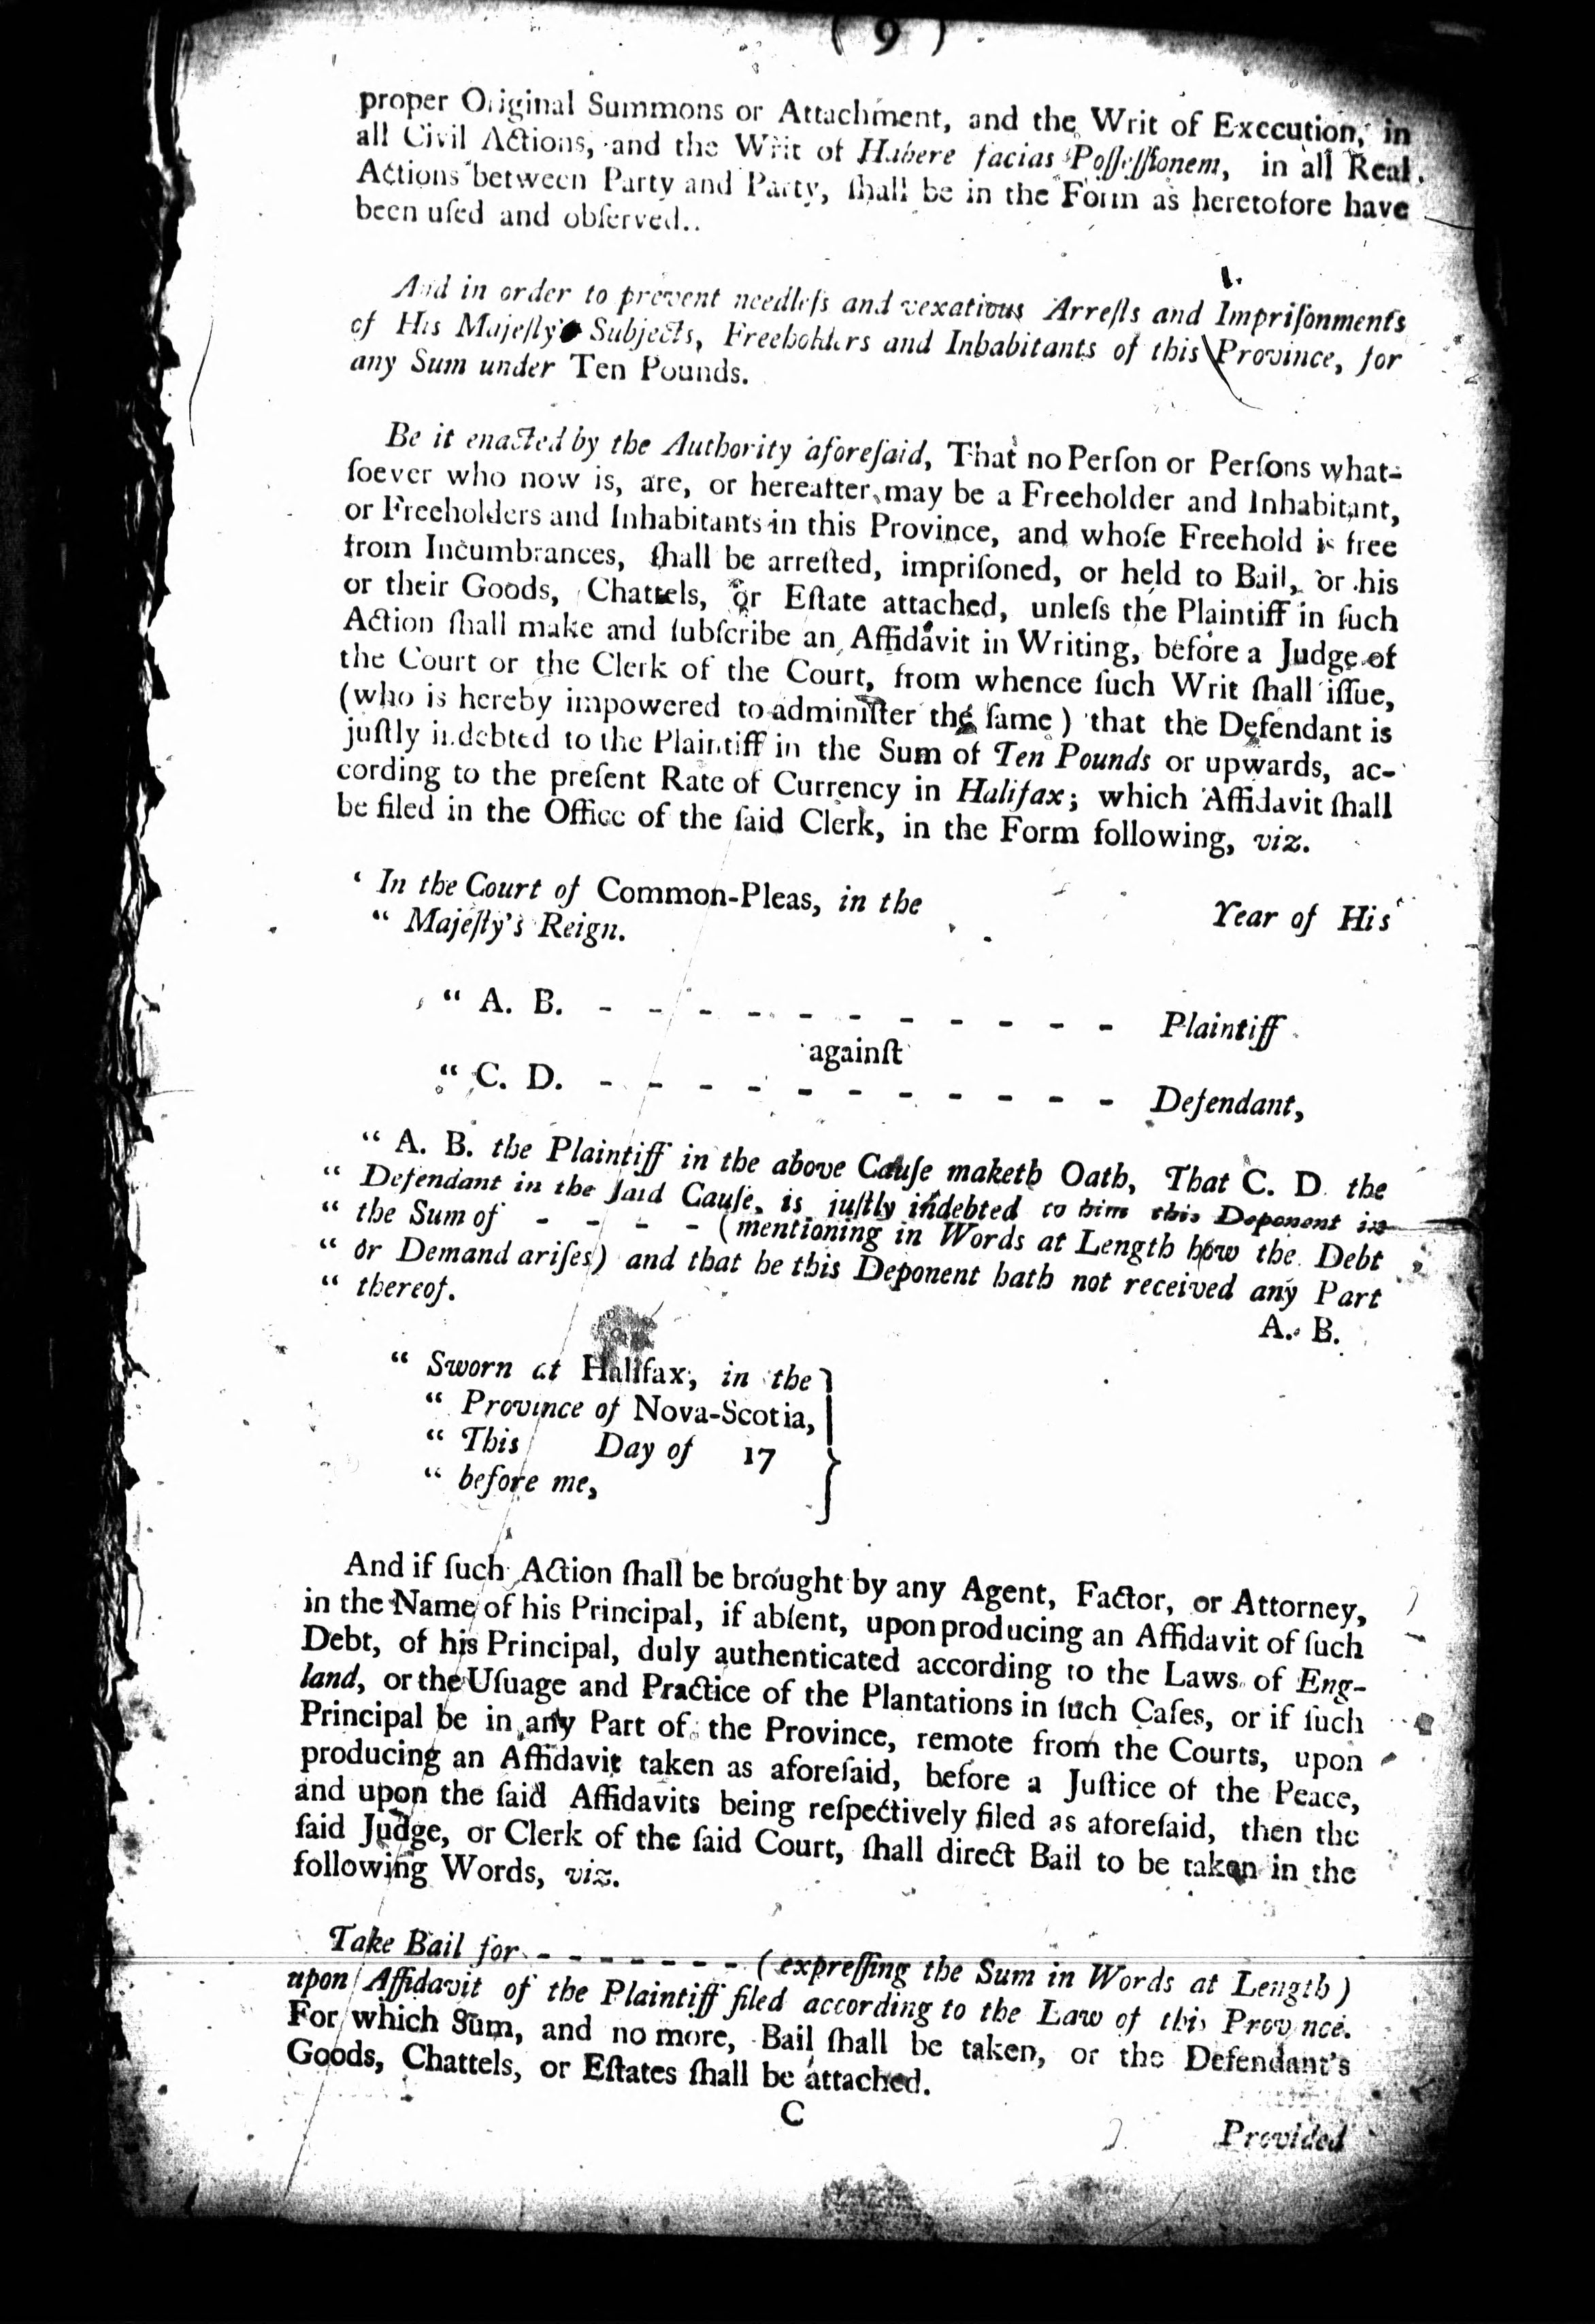 ( 9 )
proper Original Summons or Attachment, and the Writ of Execution, in
all Civil Actions, and the Writ of Habere facias Poſſeſſionem, in all Real
Actions between Party and Party, ſhall be in the Form as heretofore have
been uſed and obſerved.
And in order to prevent needleſs and vexatious Arreſts and Impriſonments
of His Majeſty's Subjects, Freeholders and Inhabitants of this Province, for
any Sum under Ten Pounds.
Be it enacted by the Authority aforeſaid, That no Perſon or Perſons what-
ſoever who now is, are, or hereafter may be a Freeholder and Inhabitant,
or Freeholders and Inhabitants in this Province, and whoſe Freehold is free
from Incumbrances, ſhall be arreſted, impriſoned, or held to Bail, or his
or their Goods, Chattels, or Eſtate attached, unleſs the Plaintiff in ſuch
Action ſhall make and ſubſcribe an Affidavit in Writing, before a Judge of
the Court or the Clerk of the Court, from whence ſuch Writ ſhall iſſue,
(who is hereby impowered to adminiſter the ſame) that the Defendant is
juſtly indebted to the Plaintiff in the Sum of Ten Pounds or upwards, ac-
cording to the preſent Rate of Currency in Halifax; which Affidavit ſhall
be filed in the Office of the ſaid Clerk, in the Form following, viz.
‘ In the Court of Common-Pleas, in the Year of His
“ Majeſty's Reign.
“ A. B. - - - - - - - - - - - Plaintiff
againſt
“ C. D. - - - - - - - - - - - Defendant,
“ A. B. the Plaintiff in the above Cauſe maketh Oath, That C. D. the
“ Defendant in the ſaid Cauſe, is juſtly indebted to him this Deponent in
“ the Sum of - - - - (mentioning in Words at Length how the Debt
“ or Demand ariſes) and that he this Deponent hath not received any Part
“ thereof.
A. B.
“ Sworn at Halifax, in the
“ Province of Nova-Scotia,
“ This Day of 17
“ before me,
And if ſuch Action ſhall be brought by any Agent, Factor, or Attorney,
in the Name of his Principal, if abſent, upon producing an Affidavit of ſuch
Debt, of his Principal, duly authenticated according to the Laws of Eng-
land, or the Uſuage and Practice of the Plantations in ſuch Caſes, or if ſuch
Principal be in any Part of the Province, remote from the Courts, upon
producing an Affidavit taken as aforeſaid, before a Juſtice of the Peace,
and upon the ſaid Affidavits being reſpectively filed as aforeſaid, then the
ſaid Judge, or Clerk of the ſaid Court, ſhall direct Bail to be taken in the
following Words, viz.
Take Bail for - - - - - - - (expreſſing the Sum in Words at Length)
upon Affidavit of the Plaintiff filed according to the Law of this Province.
For which Sum, and no more, Bail ſhall be taken, or the Defendant's
Goods, Chattels, or Eſtates ſhall be attached.
C
Provided